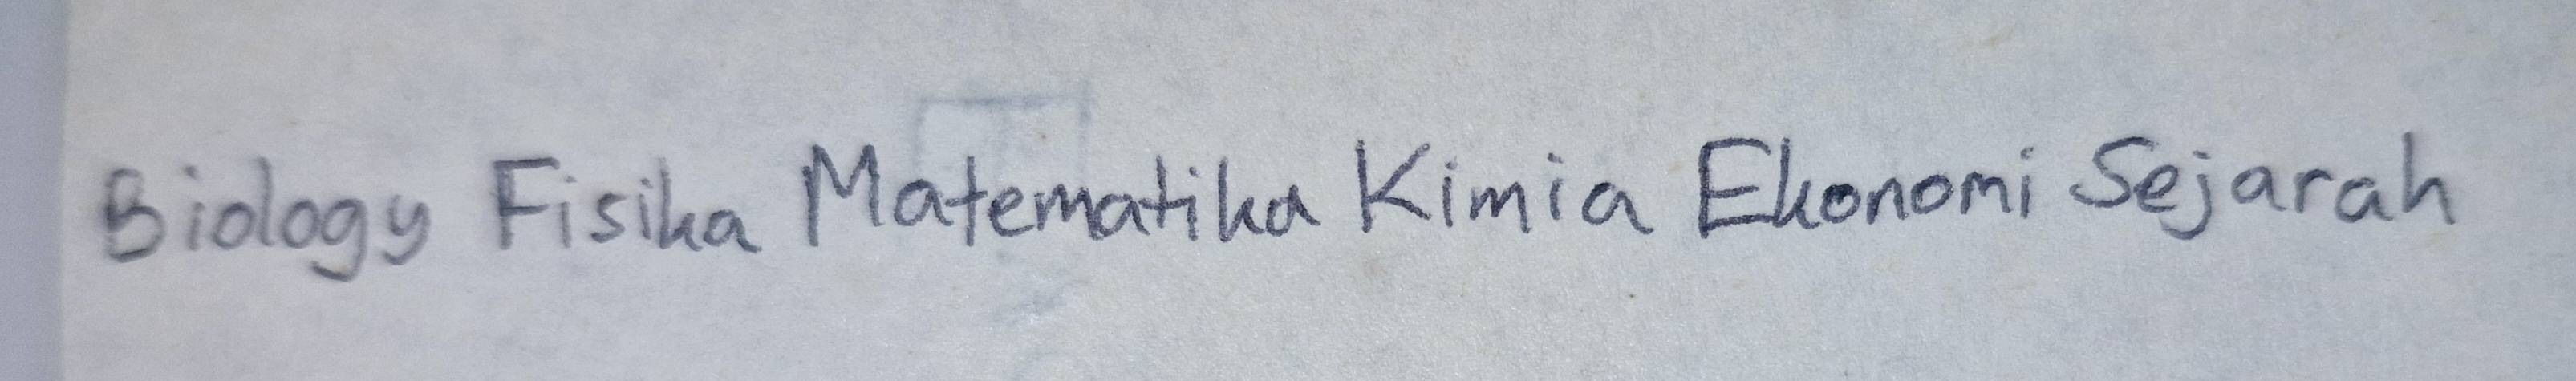 Biology Fisika Matematika Kimia Ekonomi Sejarah